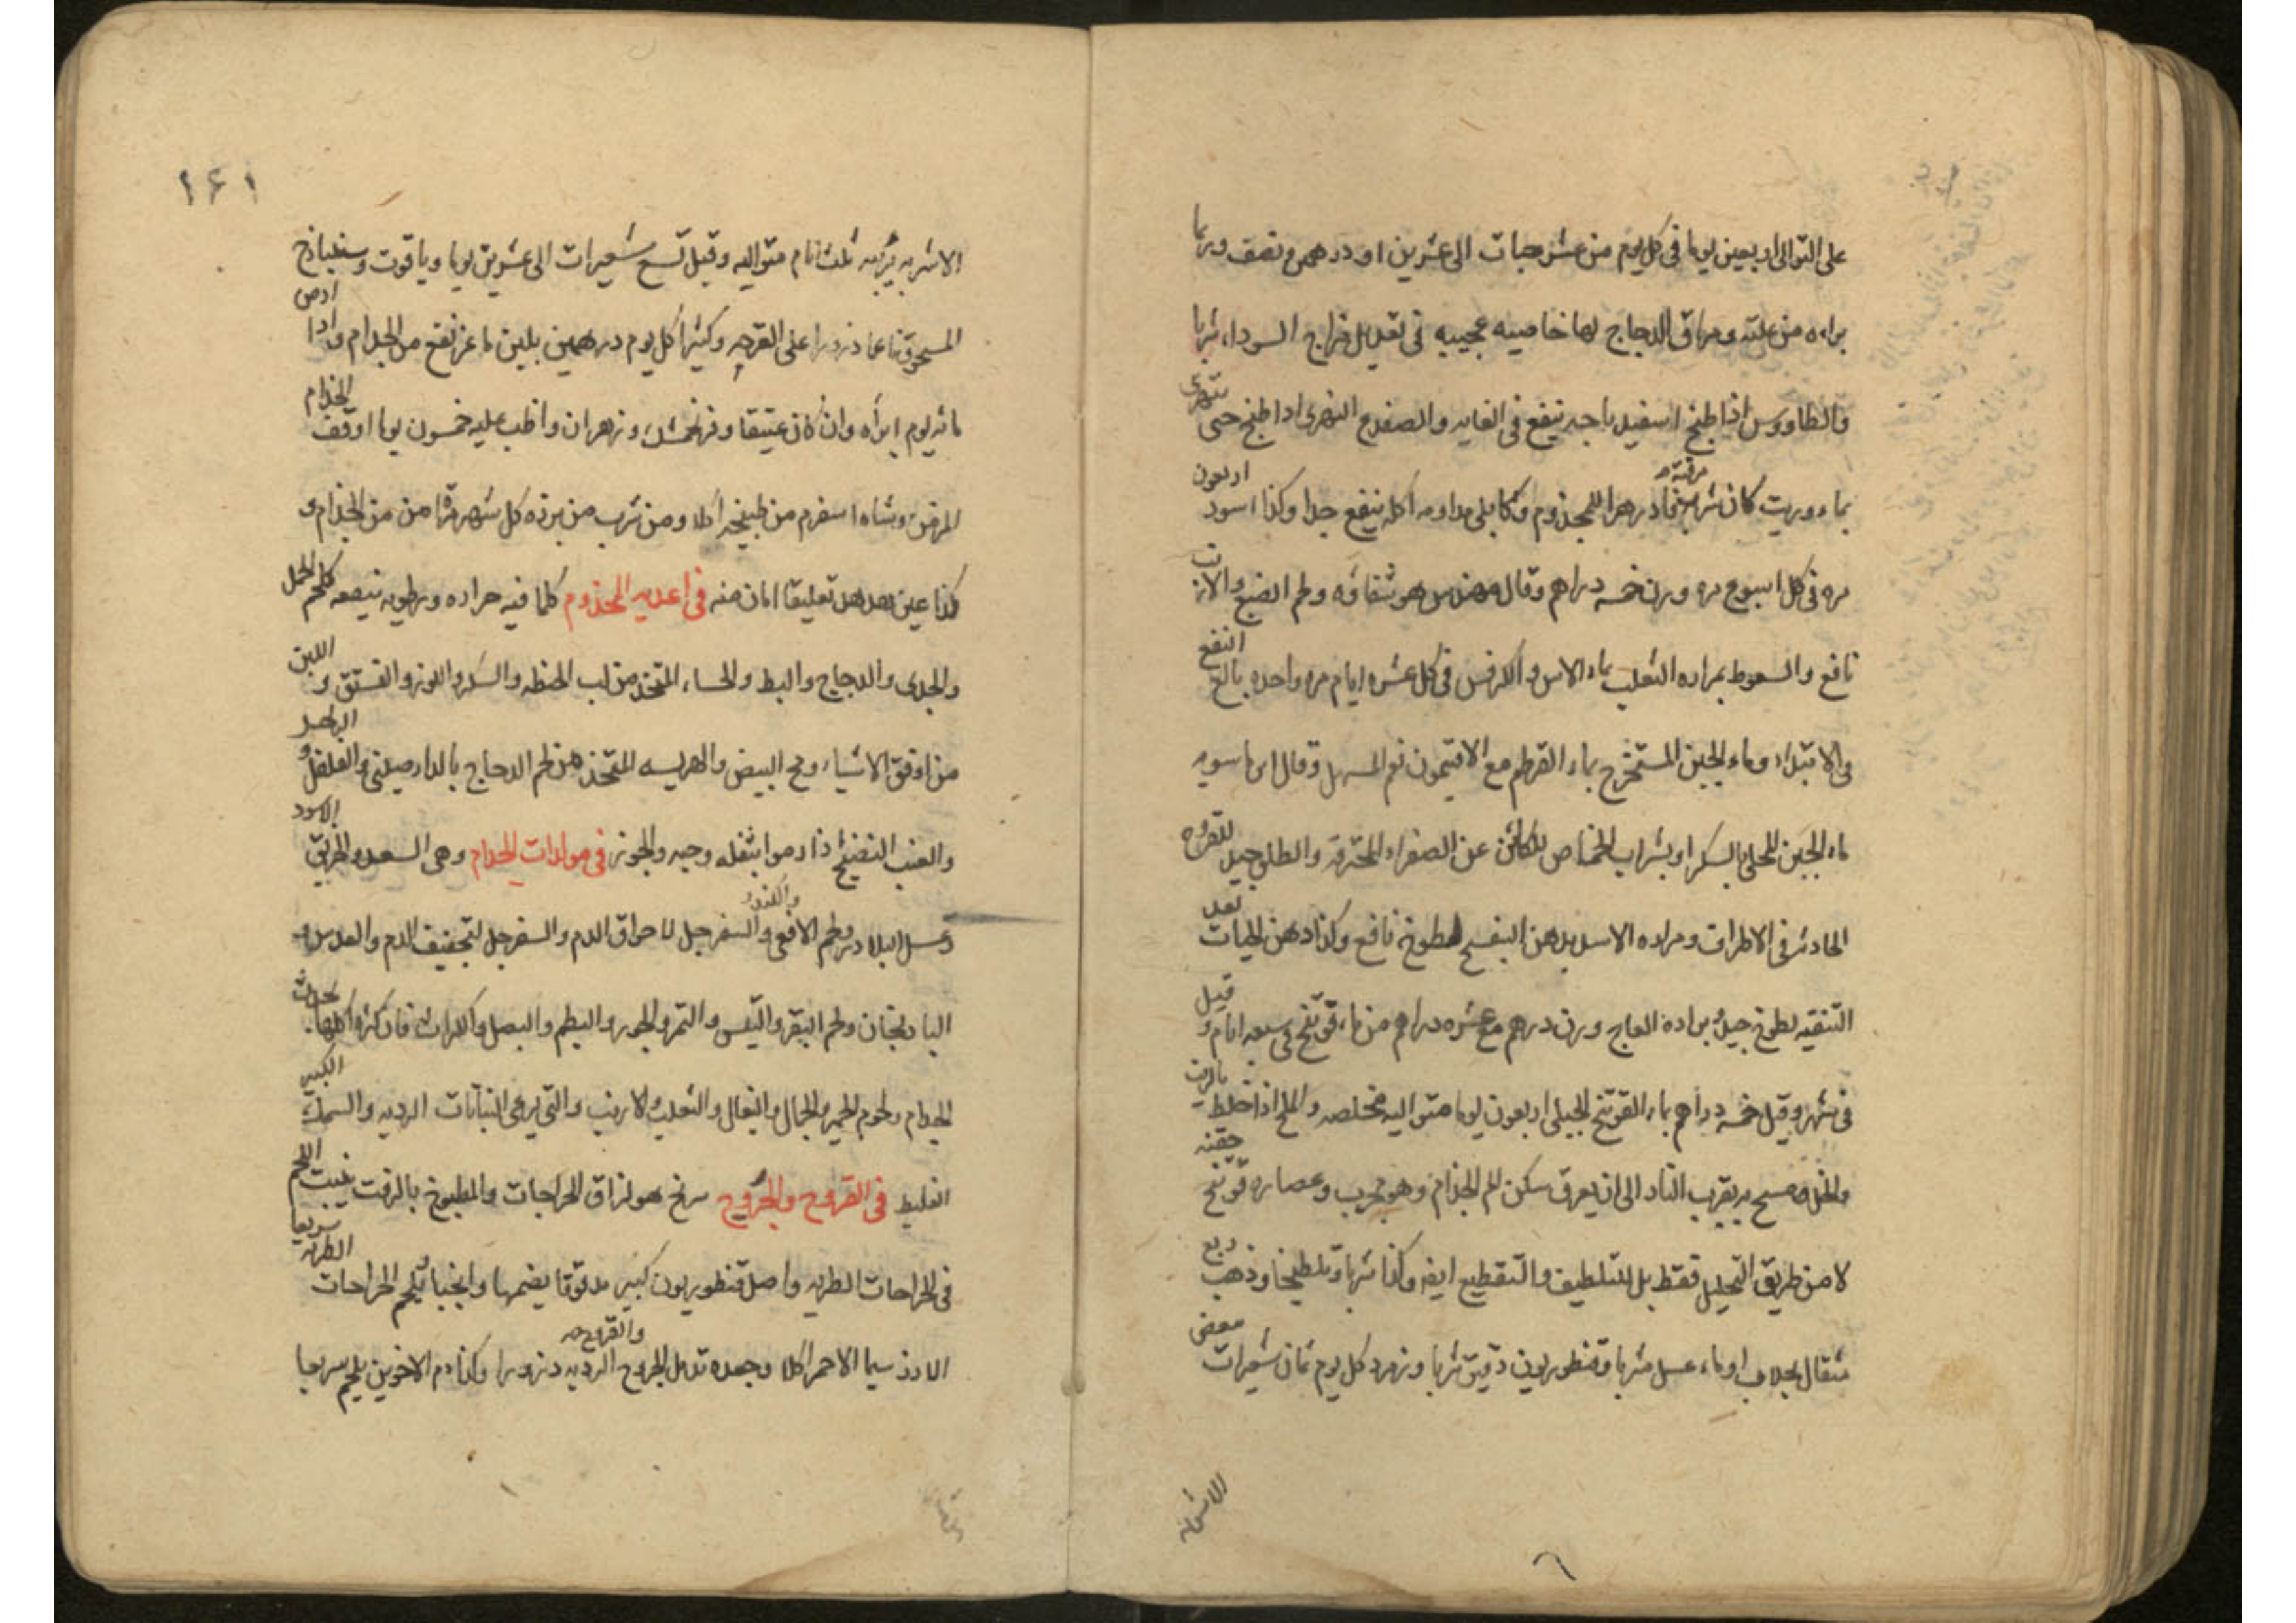 على التوالى اربعين يوما فى كل يوم من عشر حبات الى عشرين او درهم ونصف وربما
براءه من علته ومراق الدجاج لها خاصيه عجيبه فى تعديل مزاج السوداء شربا
والطاووس اذا طبخ اسفيدباجه ينفع فى الغايه والضفدع النهرى اذا طبخ حتى يتهرى
بماء وزيت كان شرب مرقته للمجذوم وكابلى مداومه اكله ينفع جدا وكذا اسود اربعون
مره فى كل اسبوع مره وزن خمسه دراهم وقال هو شفاؤه ولحم الضبع والارنب
نافع والسعوط بمراره الثعلب بماء الاس والكرفس فى كل عشره ايام مره واحده بالغ النفع
فى الابتداء وماء الجبن المستخرج بماء القرطم مع الافتيمون نعم المسهل وقال ابن ماسويه
ماء الجبن المحلى بالسكر او بشراب الحماض للكائن عن الصفراء المحترقه والطلى جيد للقروح
الحادثه فى الاطراف ومراره الاسد بدهن البنفسج لطوخ نافع وكذا دهن الحيات بعد
التنقيه لطوخ جيد وبراده العاج وزن درهم مع عشره دراهم من ماء فوتنج فى سبعه ايام وقيل
فى شهر وقيل خمسه دراهم بماء الفوتنج الجبلى اربعون يوما متواليه مخلصه والملح اذا خلط بالزيت
والخل ومسح به بقرب النار الى ان يعرق سكن الم الجذام وهو مجرب وعصاره فوتنج حقنه
لا من طريق التحليل فقط بل للتلطيف والتقطيع ايضا وكذا شربا وتلطيخا وذهب ربع
مثقال بجلاب او ماء عسل شربا وقنطوريون دقيق شربا وزمرد كل يوم ثمان شعيرات ببعض
الاشربه
١٤١
الاشربه يبريه ثلث ايام متواليه وقيل تسع شعيرات الى عشرين يوما وياقوت وسنباذج
المسحوق ناعما ذرورا على القرحه وكثيرا كل يوم درهمين بلبن ماعز نفع من الجذام واذا ادمن
مائه يوم ابراه وان كان عتيقا وفرنجمشك وزهر ان واظب عليه خمسون يوما اوقف الجذام
المزمن وشاه اسفرم من طبيخه اكلا ومن شرب من بزره كل شهر مره امن من الجذام و
كذا عين هدهد تعليقا امان منه فى اغذيه المجذوم كلما فيه حراره ورطوبه ينفعه كلحم الحمل
والجدى والدجاج والبط والحساء المتخذ من لب الحنطه والسكر واللوز والفستق و اللبن
من اوفق الاشياء ومح البيض والهريسه المتخذ من لحم الدجاج بالدارصينى والفلفل و البصل
والعنب النضيج اذا رموا بثفله وحبه والجوز فى مولدات الجذام وهى السعد والخربق الاسود
وعسل البلادر ولحم الافعى والكندر والسفرجل لاحراق الدم والسفرجل لتجفيف الدم والعدس و
البادنجان ولحم البقر والتيس والتمر والجوز والبطم والبصل والكراث فان كثره اكلها يحدث
الجذام ولحوم الحمير والجمال والبغال والثعلب والارنب والتى يرعى النباتات الرديه والسمك الكبير
الغليظ فى القروح والجروح سرنج هو لزاق الجراحات والمطبوخ بالزفت ينبت اللحم سريعا
فى الجراحات الطريه واصل قنطوريون كبير مدقوقا يضمها وانجبا يلحم الجراحات الطريه
الارز سيما الاحمر اكلا وجعده تدمل الجروح والقروح الرديه ذرورا وكذا دم الاخوين يلحم سريعا